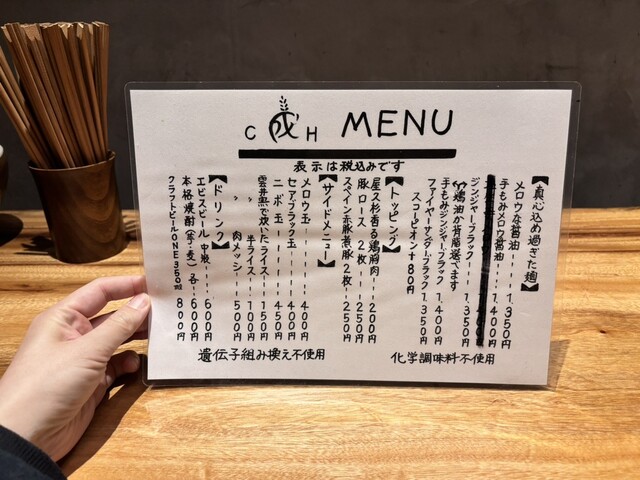 C H MENU
表示は税込みです
【真心込め過ぎた麺】
メロウな醤油 --- 1.350円
手もみメロウ醤油 --- 1.400円
ジンジャーブラック --- 1.350円
↳鶏油か背脂選べます
手もみジンジャーブラック 1.400円
ファイヤーサンダーブラック 1.350円
スコーピオン+80円
【トッピング】
屋久杉香る鶏胸肉 --- 200円
豚ロース 2枚 --- 250円
スペイン赤豚煮豚 2枚 -- 250円
【サイドメニュー】
メロウ玉 --- 400円
セアブラック玉 --- 400円
ニボ玉 --- 450円
雲井窯で炊いたライス --- 150円
〃 半ライス --- 100円
〃 肉メッシ --- 500円
【ドリンク】
エビスビール 中瓶 --- 600円
本格焼酎(芋・麦)各 - 600円
クラフトビールONE350ml 800円
遺伝子組み換え不使用
化学調味料不使用